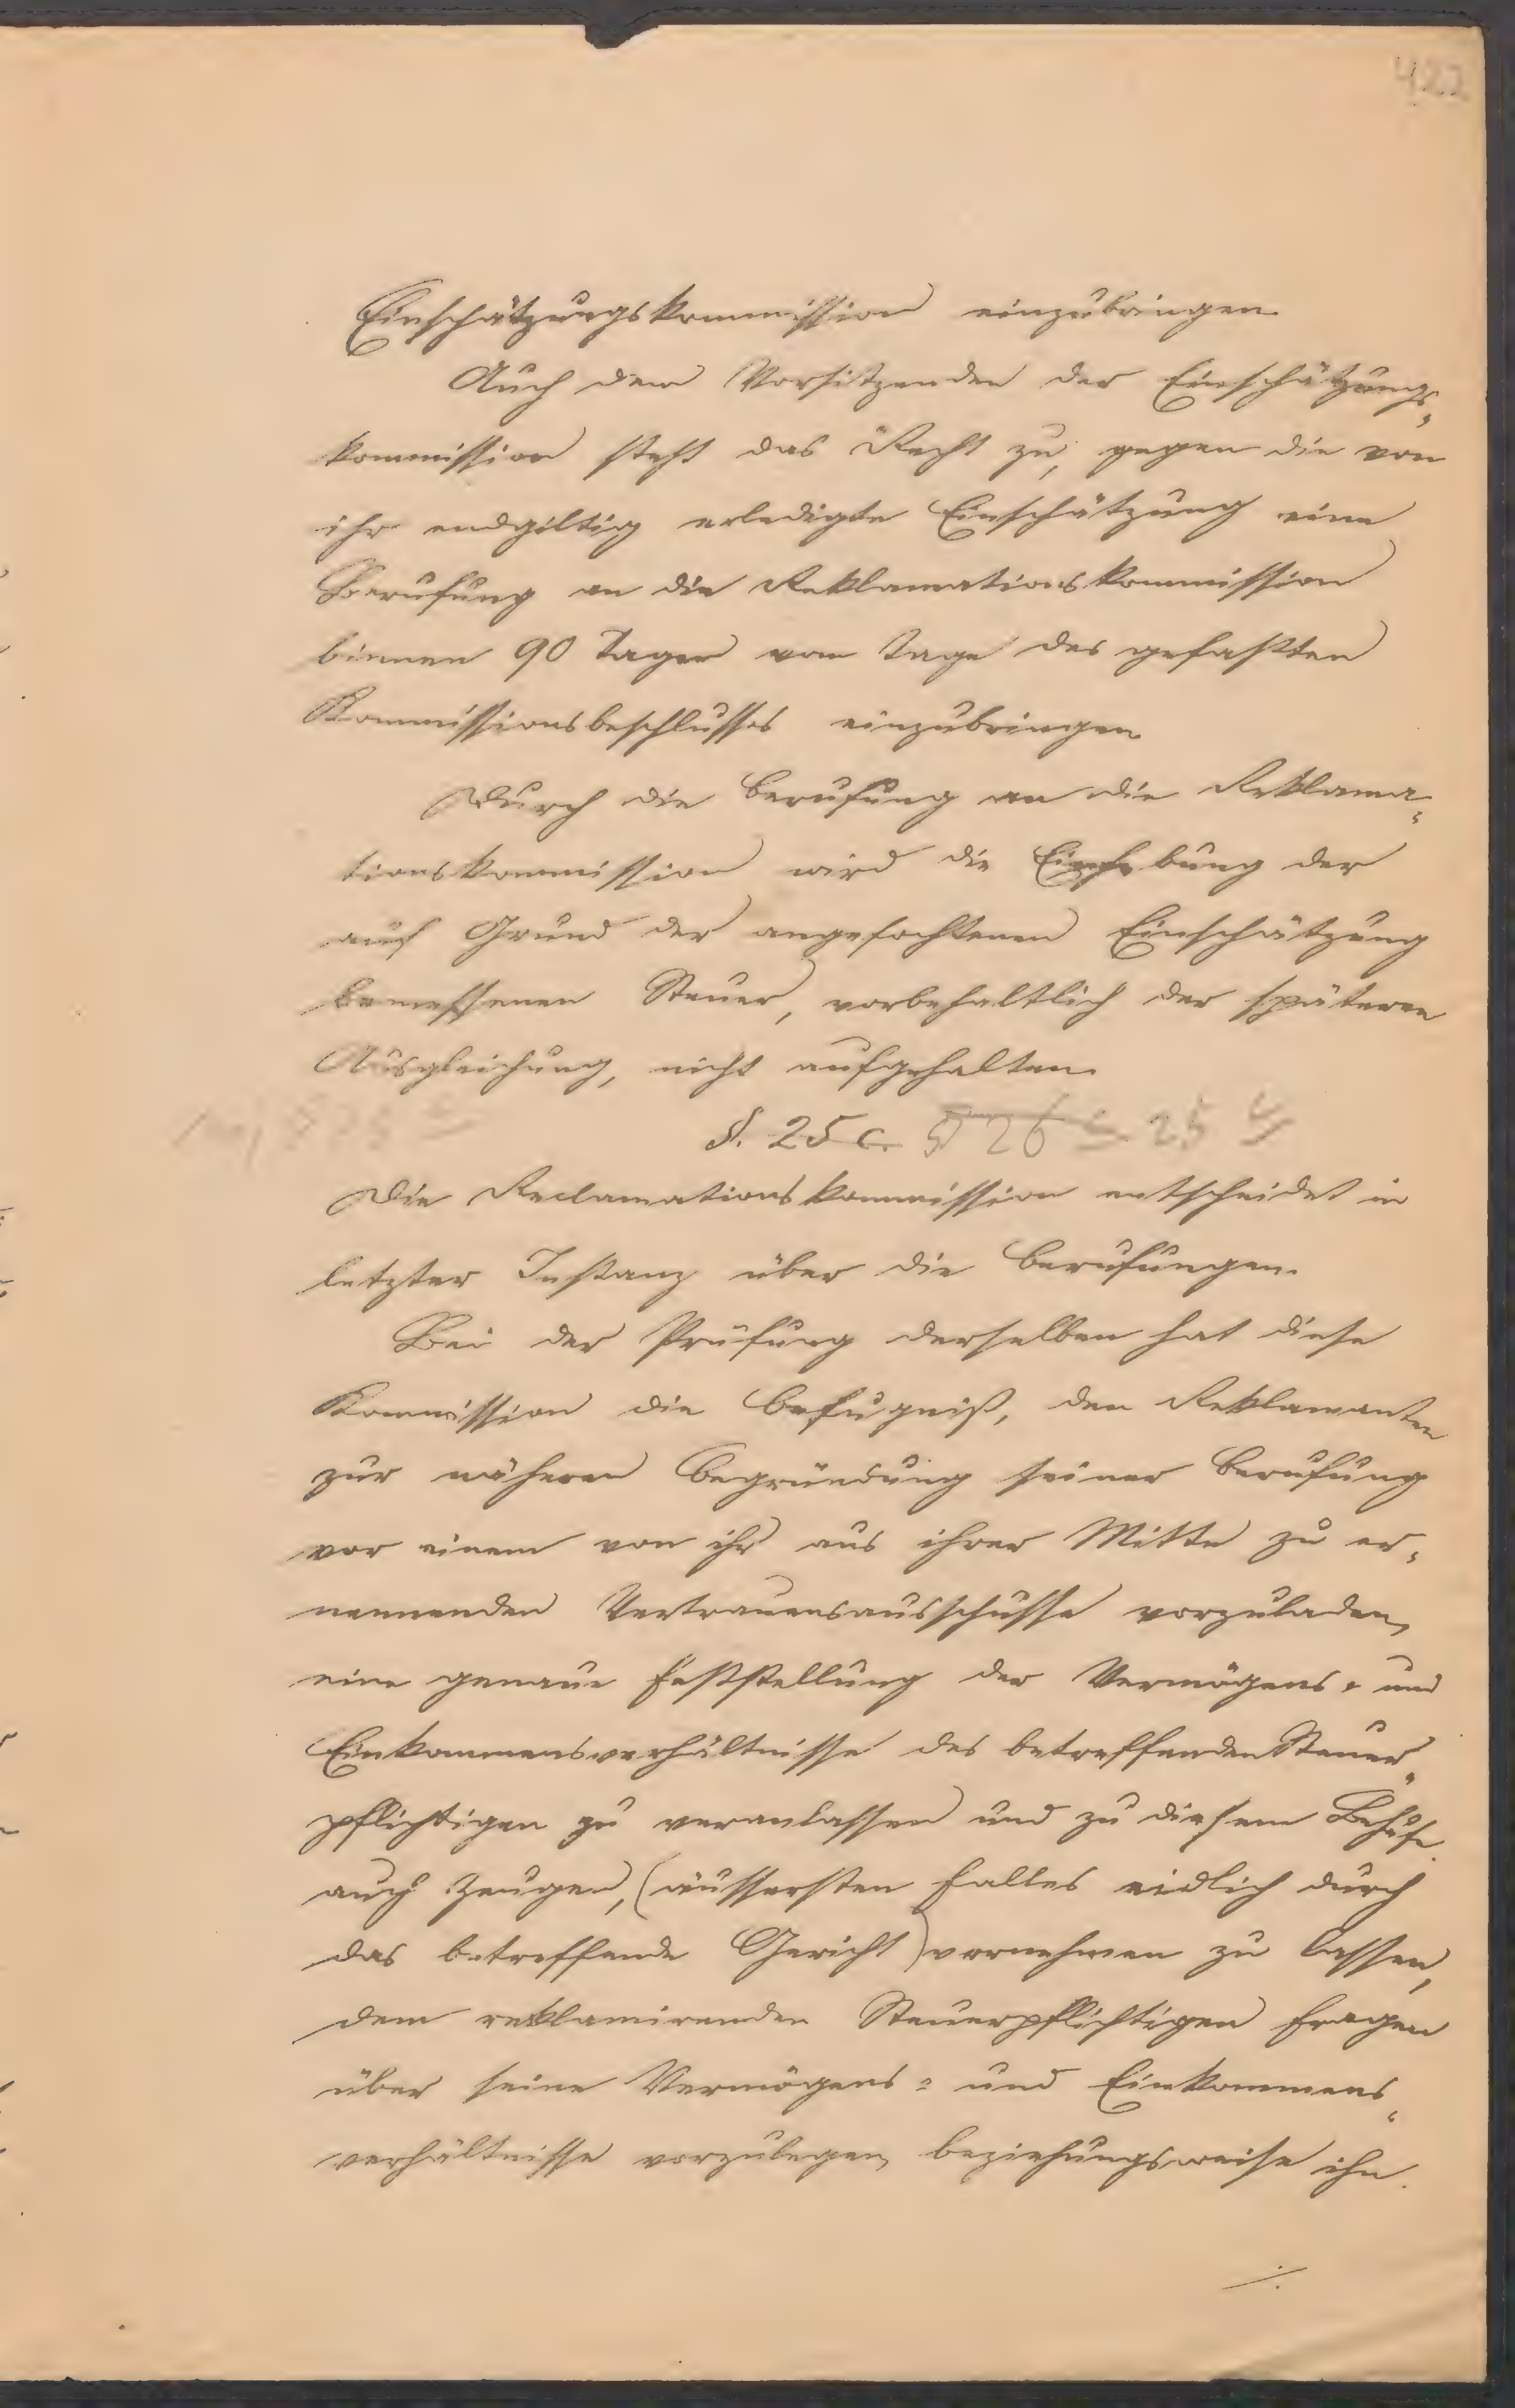 422
Einschätzungskommission einzubringen.
Auch dem Vorsitzenden der Einschätzungs-
kommission steht das Recht zu, gegen die von
ihr endgiltig erledigte Einschätzung eine
Berufung an die Reklamationskommission
binnen 90 Tagen vom Tage des gefaßten
Kommissionsbeschlusses einzubringen.
Durch die Berufung an die Reklama-
tionskommission wird die Einhebung der
auf Grund der angefochtenen Einschätzung
bemessenen Steuer, vorbehaltlich der späteren
Ausgleichung, nicht aufgehalten.
§. 25 c. § 26 25
Die Reclamationskommission entscheidet in
letzter Instanz über die Berufungen.
Bei der Prüfung derselben hat diese
Kommission die Befugniß, den Reklamanten
zur näheren Begründung seiner Berufung
vor einem von ihr aus ihrer Mitte zu er-
nennenden Vertrauensausschusse vorzuladen,
eine genaue Feststellung der Vermögens- und
Einkommensverhältnisse des betreffenden Steuer-
pflichtigen zu veranlassen und zu diesem Behufe
auch Zeugen, (äussersten Falles eidlich durch
das betreffende Gericht) vernehmen zu lassen,
dem reklamirenden Steuerpflichtigen Fragen
über seine Vermögens- und Einkommens-
verhältnisse vorzulegen, beziehungsweise ihn
./.